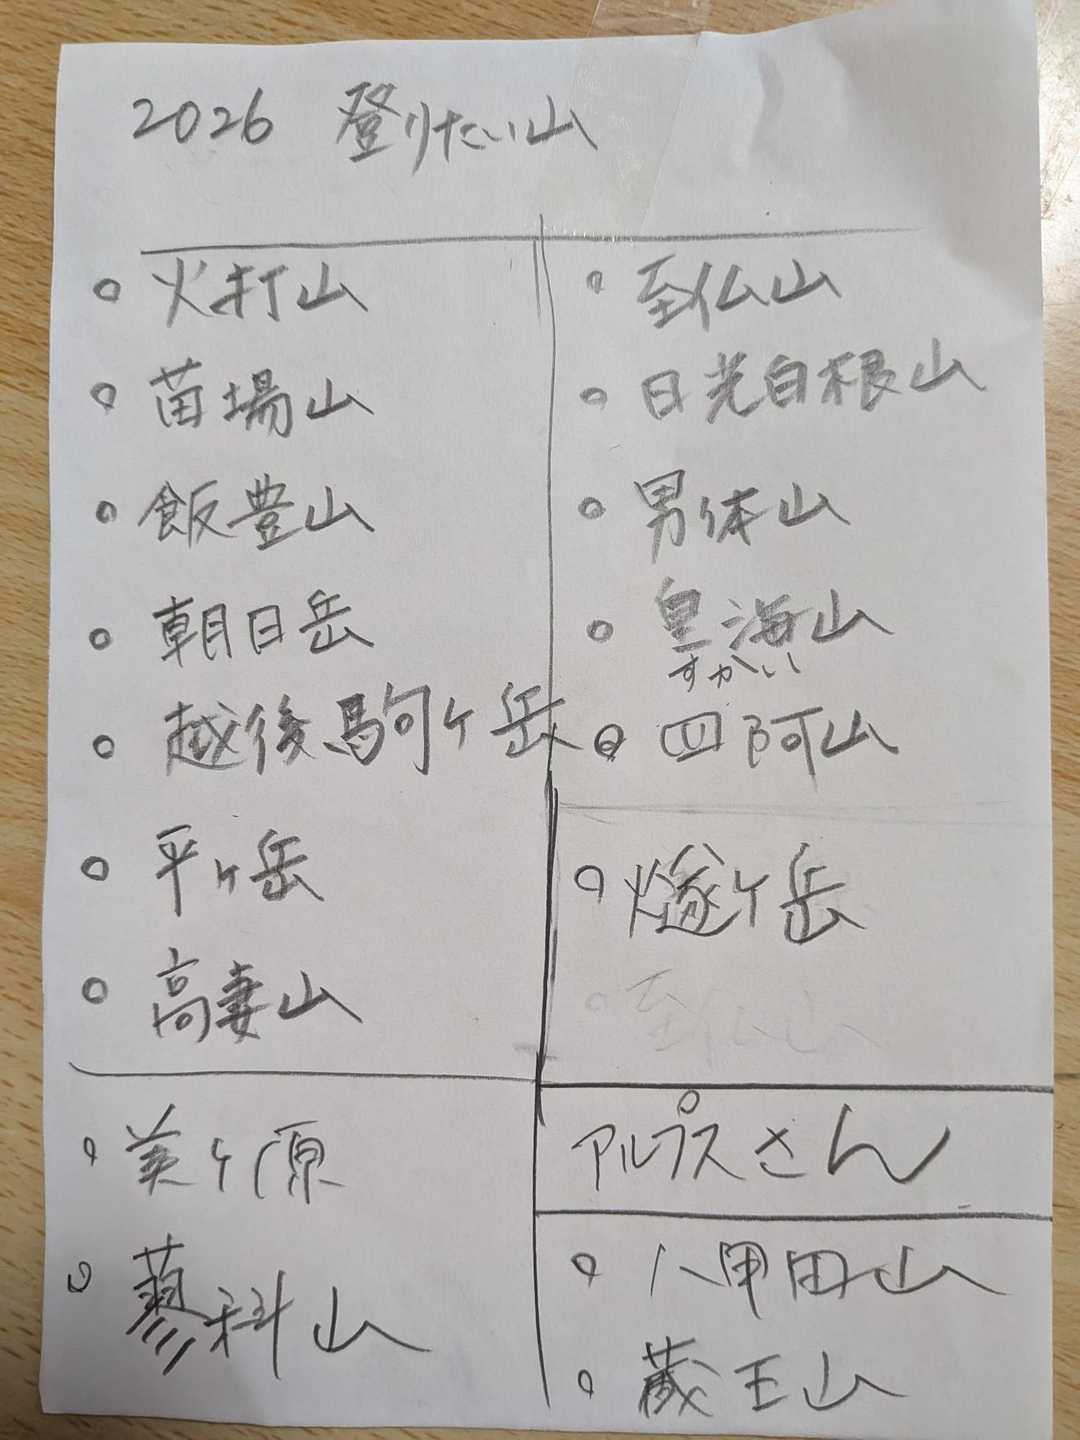 2026 登りたい山
○ 火打山
○ 苗場山
○ 飯豊山
○ 朝日岳
○ 越後駒ヶ岳
○ 平ヶ岳
○ 高妻山
○ 美ヶ原
○ 蓼科山
○ 至仏山
○ 日光白根山
○ 男体山
○ 皇海山
すかい
○ 四阿山
○ 燧ヶ岳
○ 至仏山
アルプスさん
○ 八甲田山
○ 蔵王山